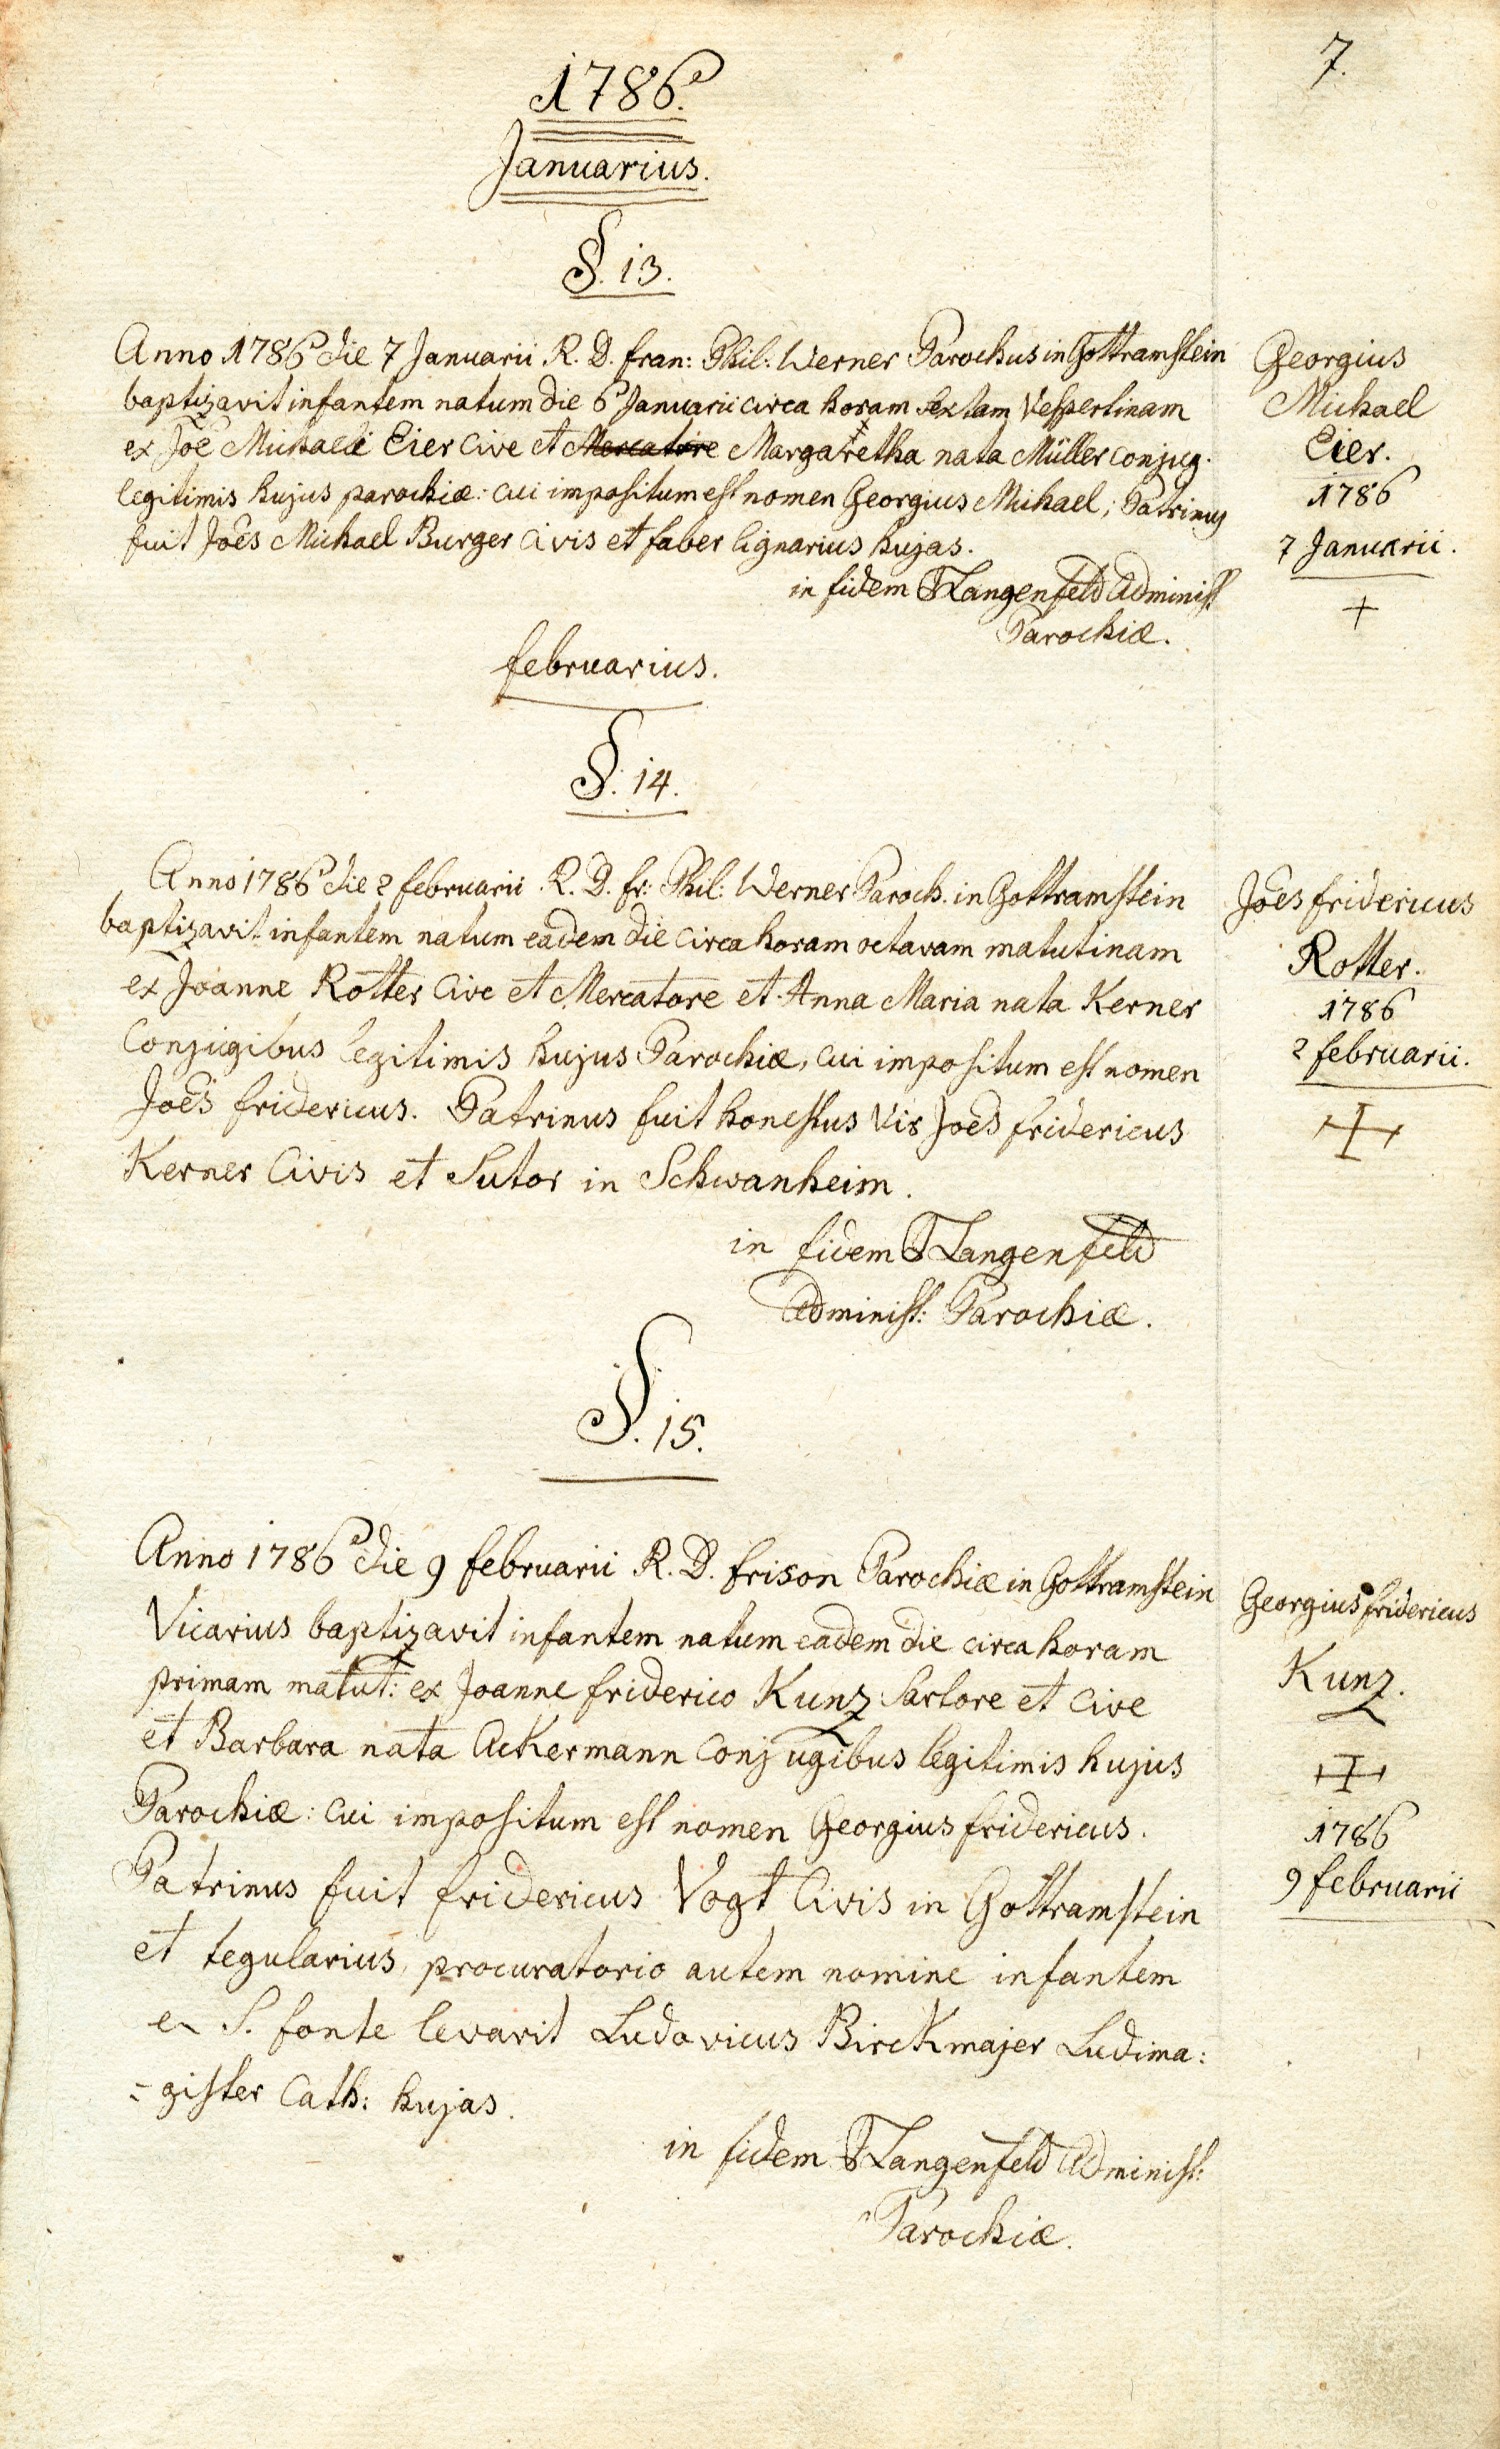 7.
1786.
Januarius.
§. 13.
Anno 1786 die 7 Januarii R. D. fran: Phil: Werner Parochus in Gottramstein
baptizavit infantem natum die 6 Januarii circa horam sextam Vespertinam
ex Joē Michaele Eier Cive et Mercatore Margaretha nata Müller conjug.
legitimis hujus parochiæ: cui impositum est nomen Georgius Michael; Patrinus
fuit Joēs Michael Burger Civis et faber lignarius hujas.
in fidem Langenfeld Administ
Parochiæ.
Georgius
Michael
Eier.
1786
7 Januarii.
+
februarius.
§. 14.
Anno 1786 die 2 februarii R. D. fr: Phil: Werner Paroch. in Gottramstein
baptizavit infantem natum eadem die circa horam octavam matutinam
ex Joanne Rotter Cive et Mercatore et Anna Maria nata Kerner
Conjugibus legitimis hujus Parochiæ, cui impositum est nomen
Joēs fridericus. Patrinus fuit honestus Vir Joēs fridericus
Kerner Civis et Sutor in Schwanheim.
in fidem Langenfeld
Administ: Parochiæ.
Joēs fridericus
Rotter.
1786
2 februarii.
§. 15.
Anno 1786 die 9 februarii R. D. frison Parochiæ in Gottramstein
Vicarius baptizavit infantem natum eadem die circa horam
primam matut: ex Joanne friderico Kunz Sartore et Cive
et Barbara nata Ackermann Conjugibus legitimis hujus
Parochiæ: cui impositum est nomen Georgius fridericus.
Patrinus fuit fridericus Vogt Civis in Gottramstein
et tegularius, procuratorio autem nomine infantem
ex S. fonte levavit Ludovicus Birckmajer Ludima:
=gister Cath: hujas.
in fidem Langenfeld Administ:
Parochiæ.
Georgius fridericus
Kunz.
1786
9 februarii